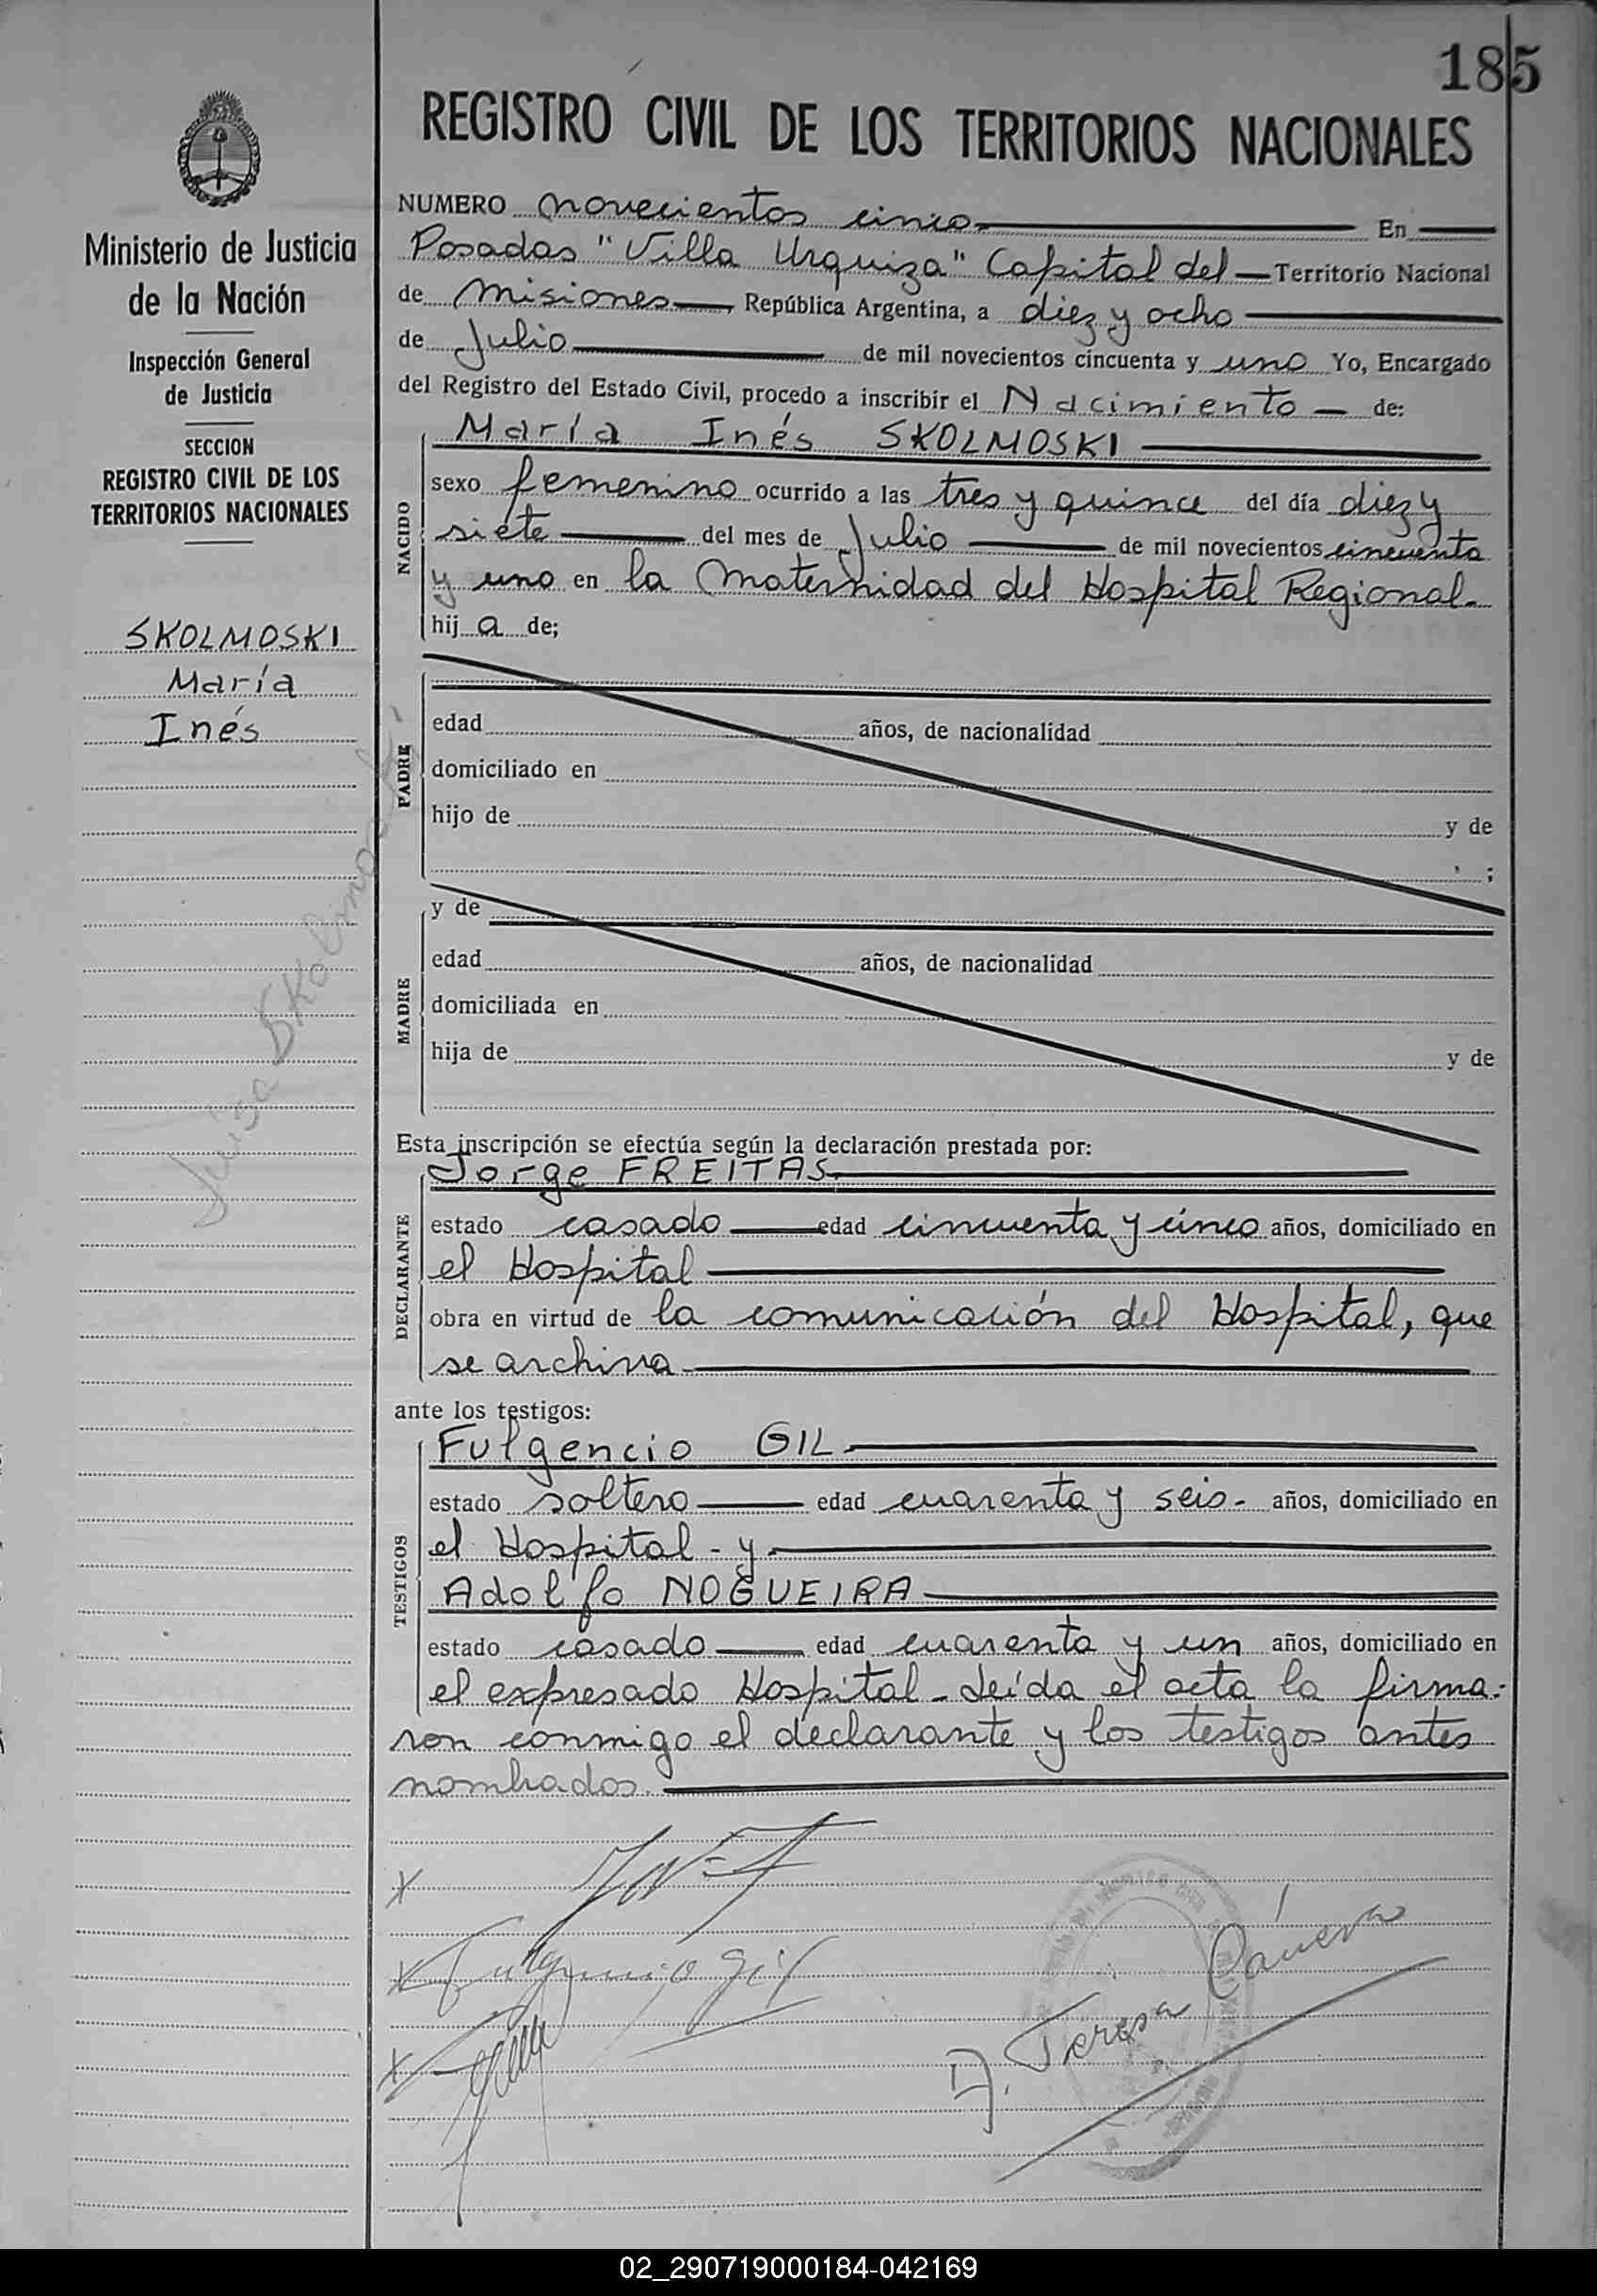 185
REGISTRO CIVIL DE LOS TERRITORIOS NACIONALES
Ministerio de Justicia
de la Nación
Inspección General
de Justicia
SECCION
REGISTRO CIVIL DE LOS
TERRITORIOS NACIONALES
SKOLMOSKI
María
Inés
Luisa
NUMERO novecientos cinco En
Posadas "Villa Urquiza" Capital del Territorio Nacional
de Misiones, República Argentina, a diez y ocho
de Julio de mil novecientos cincuenta y uno Yo, Encargado
del Registro del Estado Civil, procedo a inscribir el Nacimiento de:
NACIDO
María Inés SKOLMOSKI
sexo femenino ocurrido a las tres y quince del día diez y
siete del mes de Julio de mil novecientos cincuenta
y uno en la Maternidad del Hospital Regional.
hij a de;
PADRE
edad años, de nacionalidad
domiciliado en
hijo de y de
;
MADRE
y de
edad años, de nacionalidad
domiciliada en
hija de y de
Esta inscripción se efectúa según la declaración prestada por:
DECLARANTE
Jorge FREITAS
estado casado edad cincuenta y cinco años, domiciliado en
el Hospital
obra en virtud de la comunicación del Hospital, que
se archiva
ante los testigos:
TESTIGOS
Fulgencio GIL
estado soltero edad cuarenta y seis - años, domiciliado en
el Hospital - y
Adolfo NOGUEIRA
estado casado edad cuarenta y un años, domiciliado en
el expresado Hospital - Leída el acta la firma-
ron conmigo el declarante y los testigos antes
nombrados.
x
x Fulgencio Gil
x
Teresa
02_290719000184-042169